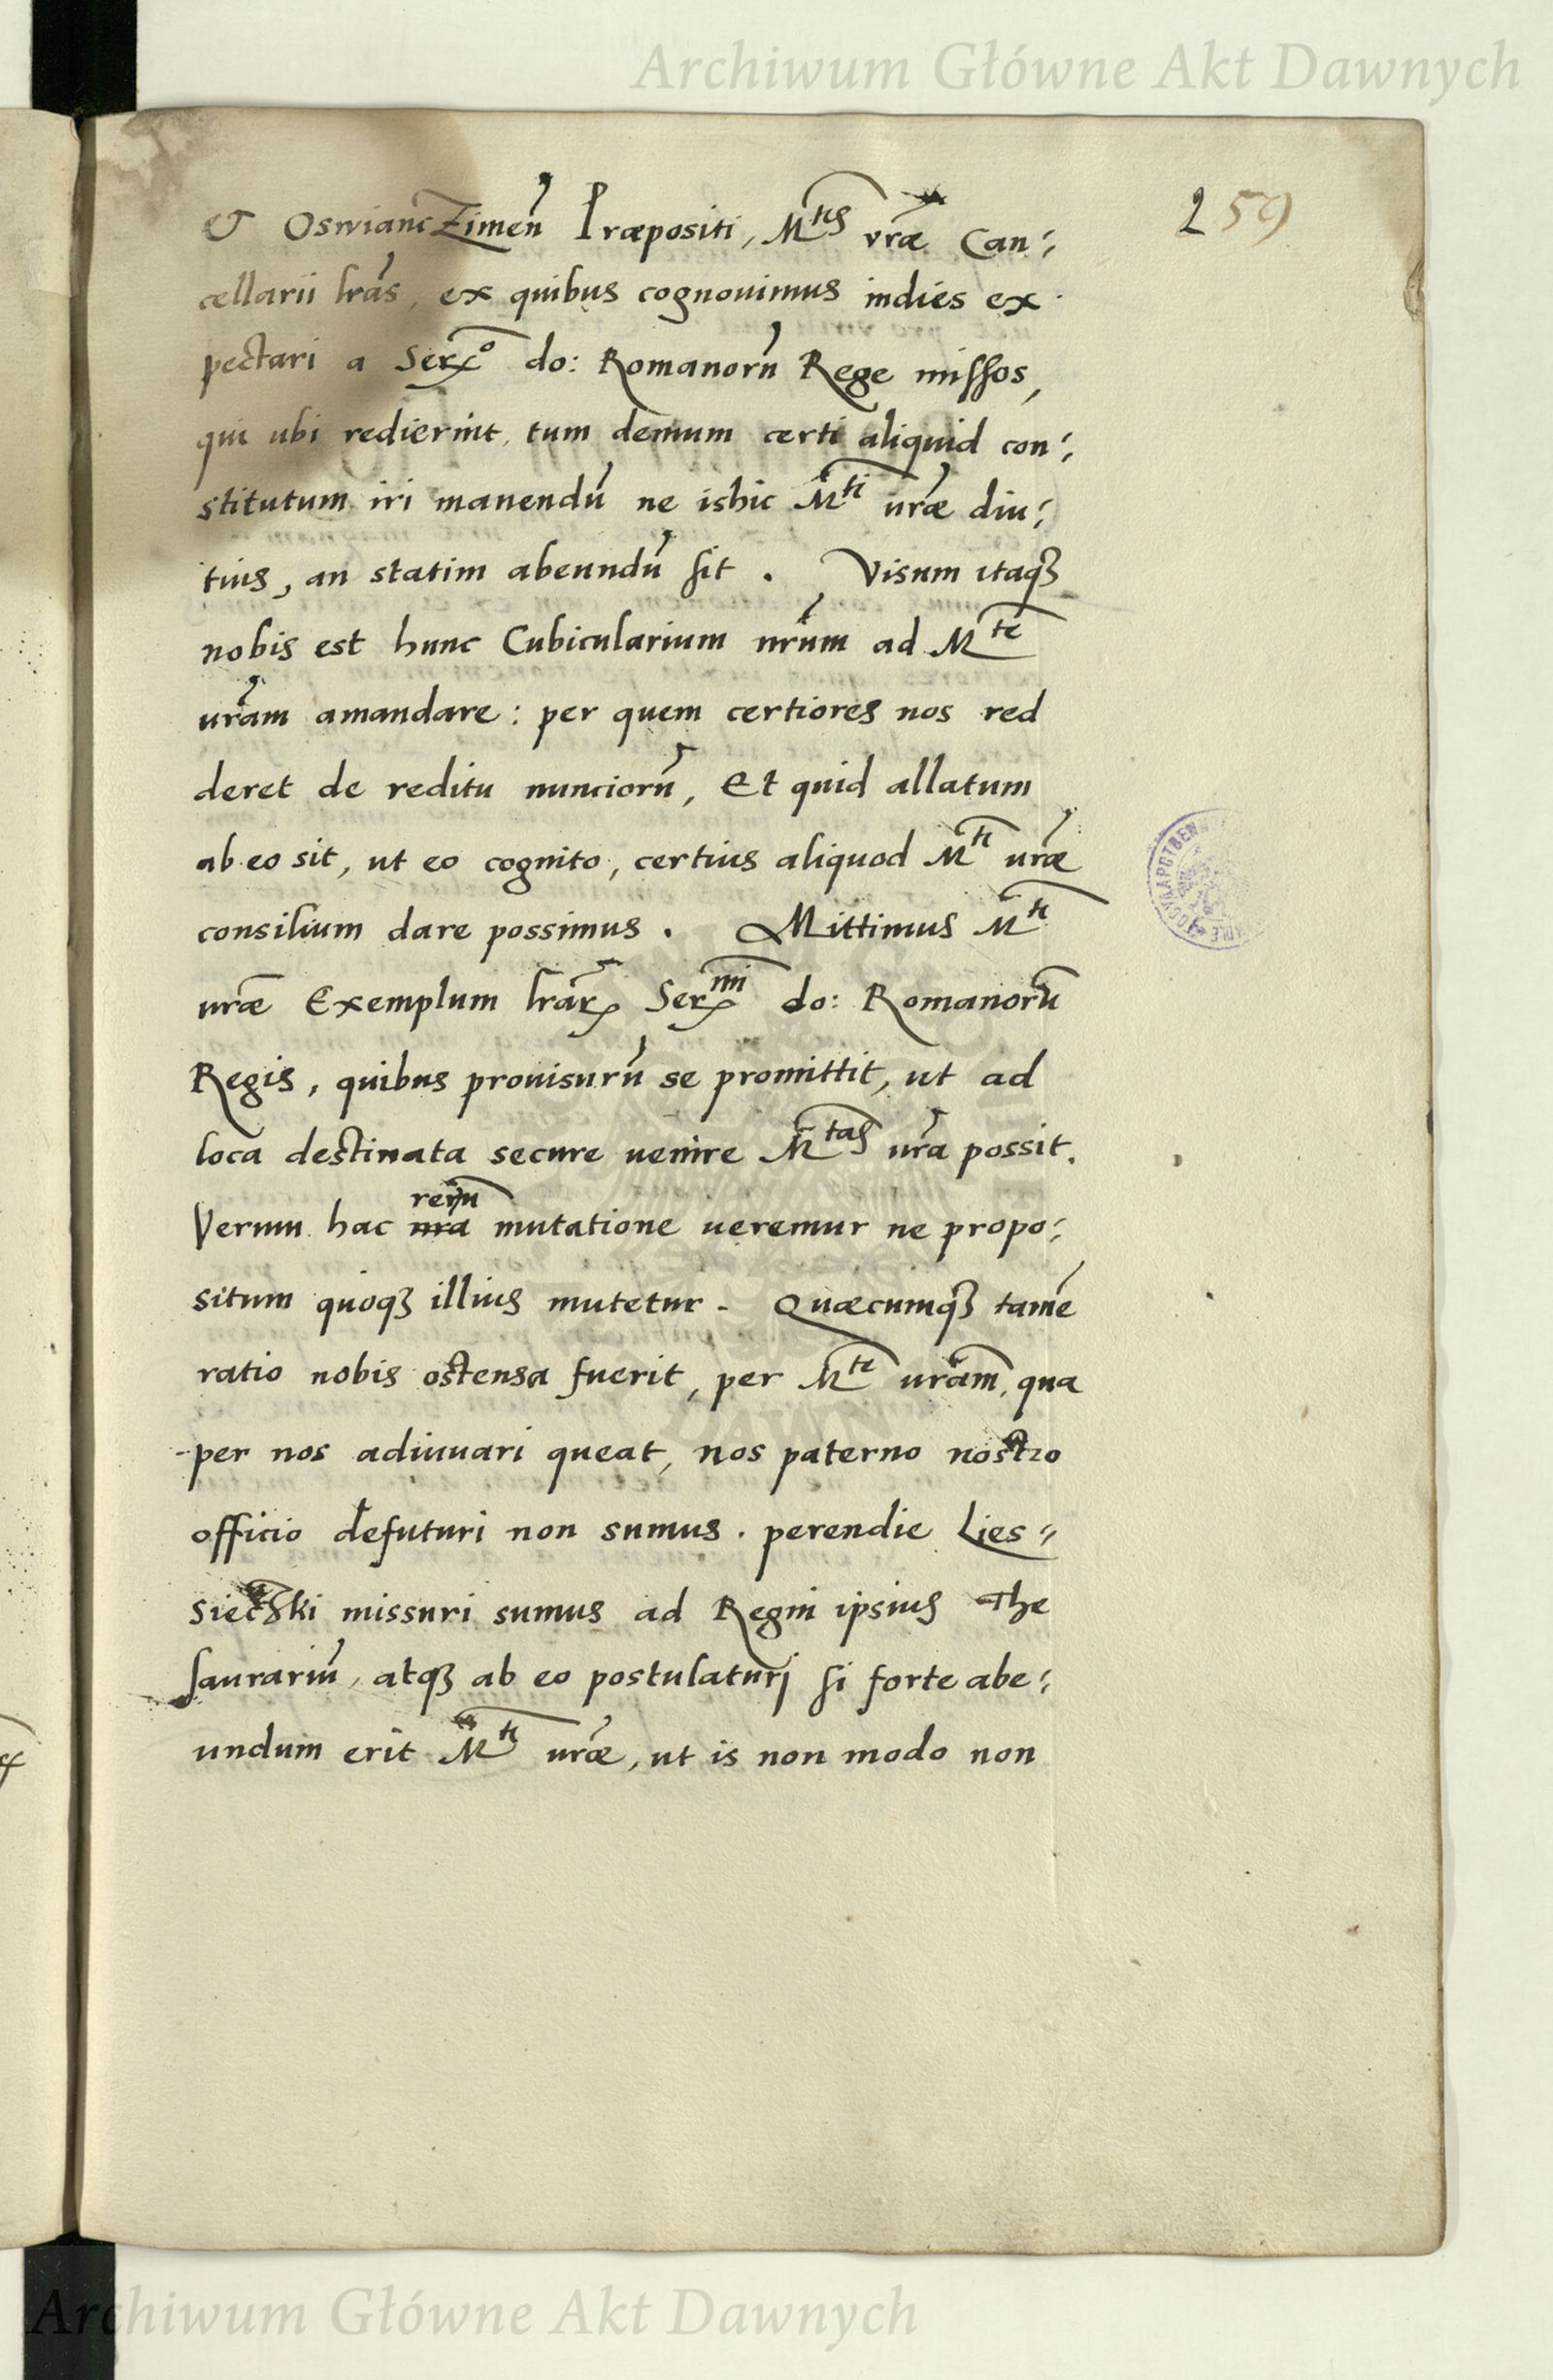 Archiwum Główne Akt Dawnych
259
& OswiancZimen̄ Præpositi, M^tis vræ Can:
cellarii lras, ex quibus cognouimus indies ex
pectari a Ser^o do: Romanorū Rege missos,
qui ubi redierint, tum demum certi aliquid con:
stitutum iri manendū ne ishic M^ti uræ diu:
tius, an statim abeundū sit. Visum itaq₃
nobis est hunc Cubicularium nrūm ad M^te
uram amandare: per quem certiores nos red
deret de reditu nunciorū, Et quid allatum
ab eo sit, ut eo cognito, certius aliquod M^ti uræ
consilium dare possimus. Mittimus M^ti
uræ Exemplum lrar̄ Ser^mi do: Romanorū
Regis, quibus prouisurū se promittit, ut ad
loca destinata secure uenire M^tas ura possit.
Verum hac nra rerū mutatione ueremur ne propo:
situm quoq₃ illius mutetur. Quæcumq₃ tamē
ratio nobis ostensa fuerit, per M^te uram, qua
per nos adiuuari queat, nos paterno nostro
officio defuturi non sumus. perendie Lies:
sieczki missuri sumus ad Regni ipsius The
saurariū, atq₃ ab eo postulaturj si forte abe:
undum erit M^ti uræ, ut is non modo non
Archiwum Główne Akt Dawnych